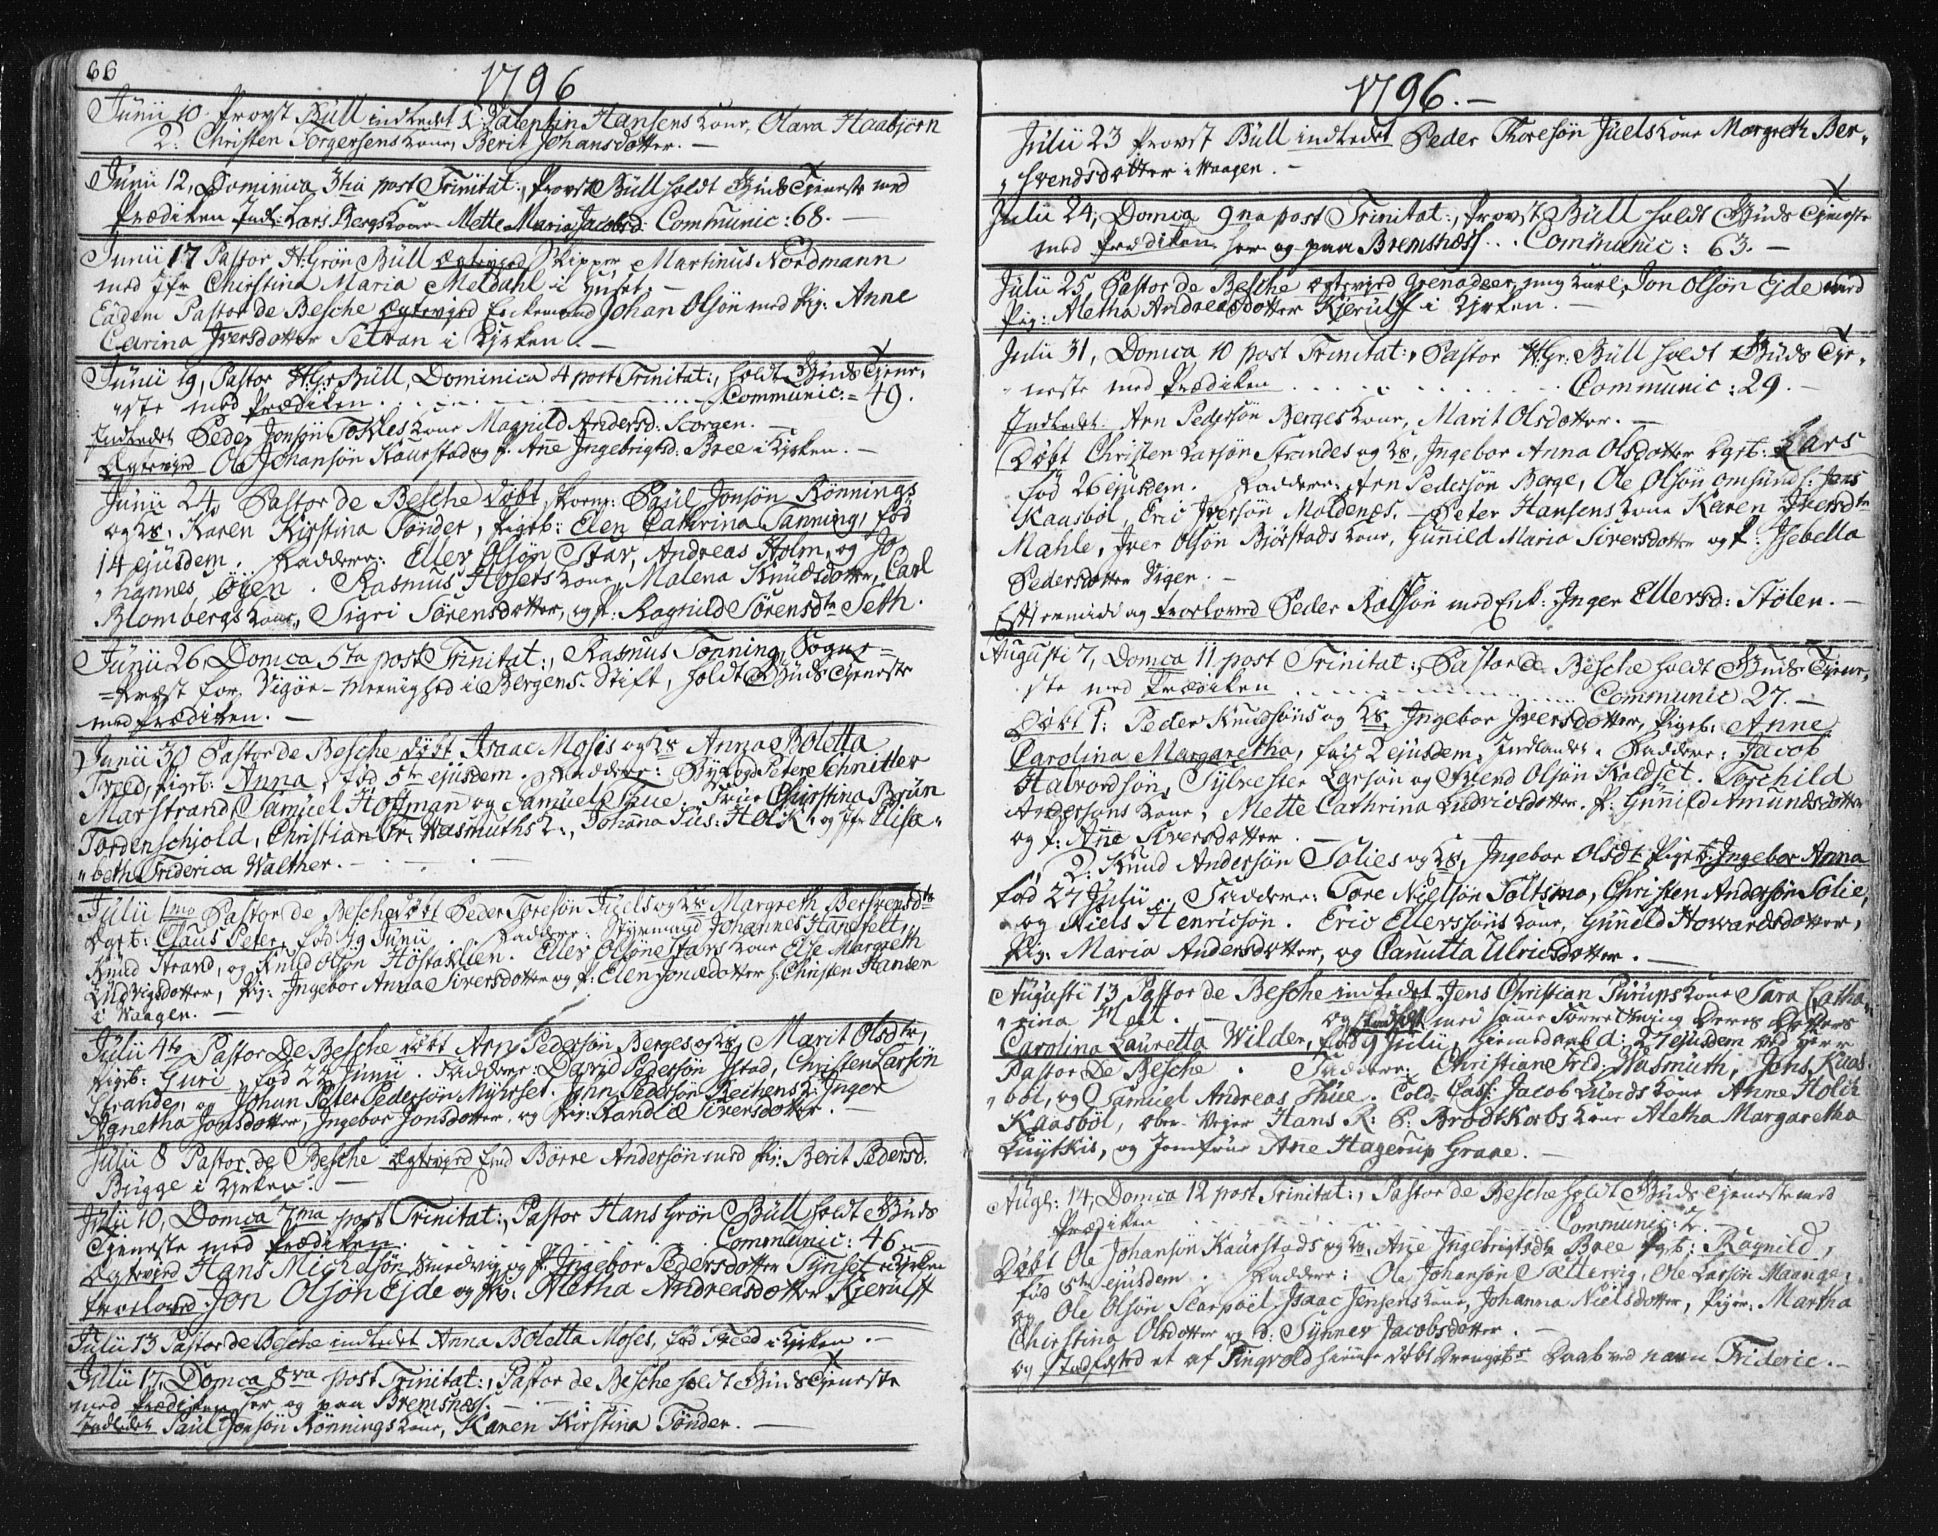 66
1796
Junii 10. Provst Büll indledet 1. Valentin Hansens Kone, Olava Haabjörn
2. Christen Torgersens Kone, Berit Johansdotter. —
Junii 12, Dominica 3tia post Trinitat:, Provst Büll holdt Guds Tjeneste med
Prædiken Indl: Lars Bergs Kone Mette Maria Jacobsd: Communic: 68. —
Junii 17 Pastor H: Grön Büll Ægteviet Skipper Martinus Nordmann
med Jfr Christina Maria Meldahl i Huset. —
Eadem Pastor de Besche Ægteviet Enkemand Johan Olsön med Pig: Anne
Carina Iversdotter Setran i Kirken. —
Junii 19, Pastor H: Gr: Büll, Dominica 4 post Trinitat:, holdt Guds Tjene,
„ste med Prædiken . . . . . . Communic: = 49.
Indledet Peder Jonsön Tosles Kone Magnild Andersd: Scorgen. —
Ægteviet Ole Johansön Kaurstad og P. Ane Ingebrigtsd: Bree i Kirken. —
Junii 24, Pastor de Besche döbt, Paul Jonsön Rönnings
og H8, Karen Kirstina Tönder, Pigeb: Elen Cathrina Tanning, föd
14 ejusdem. Faddere: Eller Olsön Stav, Andreas Holm, og Jo
„hannes Öyen. Rasmus Hosers Kone, Malena Knudsdotter, Carl
Blombergs Kone, Sigri Sörensdotter, og P. Ragnild Sörensdtr Seth.
Junii 26, Domca 5ta post Trinitat:, Rasmus Tönning, Sogne=
=Præst for Vigör-Meenighed i Bergens-Stift, holdt Guds Tjeneste
med Prædiken. —
Junii 30 Pastor de Besche döbt Isaac Mosis og H8 Anna Boletta
Treed, Pigeb: Anna, föd 5te ejusdem. Faddere: Byfogd Peter Schnitler
Marstrand, Samuel Hoffman og Samuel Thue. Frue Christina Brün
Tordenschjold, Christian Fr: Wasmuths K:, Johanna Sus: Holk, og Jfr Elisa„
„beth Friderica Walther. —
Julii 1mo Pastor de Besche döbt Peder Toresön Juels og H8 Margreth Bersvensdtr
Dgeb: Claus Peter, föd 19 Junii. Faddere: Styrmand Johannes Hanefelt,
Knud Strand, og Knud Olsön Hostaklien. Eller Olsöns Stavs Kone Else Margreth
Ludvigsdotter, Pig: Ingebor Anna Siversdotter og P: Elen Jonædotter H. Christen Hansen
i Waagen. —
Julii 4to Pastor De Besche döbt Arn Pedersön Berges og H8, Marit Olsdtr,
Pigeb: Guri, föd 22 Junii. Faddere: David Pedersön Istad, Christen Larsön
Strande, og Johan Peter Pedersön Myhrset. John Pedersön Reitens K: Inger
Agnetha Jonsdotter, Ingebor Jonsdotter, og Pig: Randiæ Siversdotter. —
Julii 8 Pastor de Besche Ægteviet End Börre Andersön med Pig: Berit Pedersd.
Bügge i Kirken. —
Julii 10, Domca 7ma post Trinitat:, Pastor Hans Grön Büll holdt Guds
Tjeneste med Prædiken . . . . . . Communic: 46. —
Ægteviet Hans Michelsön Smedvig og P. Ingebor Pedersdotter Tynset i Kirken
Trolovet Jon Olsön Ejde og Pig: Aletha Andreasdotter Kjerulff
Julii 13 Pastor de Besche indledet Anna Boletta Moses, föd Treed i Kirken. —
Julii 17, Domca 8va post Trinitat:, Pastor de Besche holdt Guds Tjeneste
med Prædiken her og paa Bremsnæs. —
Indledet Paul Jonsön Rönnings Kone, Karen Kirstina Tönder. —
1796. —
Julii 23 Provst Büll indledet Peder Thoresön Juels Kone Margreth Ber„
„svendsdotter i Waagen. —
Julii 24, Domca 9na post Trinitat:, Provst Büll holdt Guds Tjeneste
med Prædiken her og paa Bremsnæss . . . Communic: 63. —
Julii 25, Pastor de Besche Ægteviet Grenadeer, ung Karl, Jon Olsön Ejde med
Pig: Aletha Andreasdotter Kjerulff i Kirken. —
Julii 31, Domca 10 post Trinitat:, Pastor H: Gr: Büll holdt Guds Tje„
„neste med Prædiken . . . . . . Communic: 29. —
Indledet Arn Pedersön Berges Kone, Marit Olsdotter. —
Döbt Christen Larsön Strandes og H8, Ingebor Anna Olsdotter Dgeb: Lars
föd 26 ejusdem. Faddere: Arn Pedersön Berge, Ole Olsön Omsund f: Jens
Kaasböl, Eric Iversön Moldenæs. Peter Hansens Kone Karen Iversdtr
Mahle, Iver Olsön Björstads Kone, Gunnild Maria Siversdotter og P: Isebella
Pedersdotter Vigen. —
Eftermidd ag trolovet Peder Rolfsön med Enk: Inger Ellersd: Stölen. —
Augusti 7, Domca 11 post Trinitat:, Pastor de Besche holdt Guds Tjene„
ste med Prædiken . . . . . . Communic 27. —
Döbt 1: Peder Knudsöns og H8, Ingebor Iversdotter, Pigeb: Anne
Carolina Margaretha, föd 2 ejusdem, Indlandet. Faddere: Jacob
Halvordsön, Sylvester Larsön og Svend Olsön Koldset. Torchild
Andersöns Kone, Mette Cathrina Ludvigsdotter. P: Gunnild Amundsdotter
og P: Ane Siversdotter. —
2: Knud Andersön Solies og H8, Ingebor Olsdtr Pigeb: Ingebor Anna
föd 27 Julii. Faddere: Tore Nielsön Soltsmo, Christen Andersön Solie,
og Niels Henricsön. Eric Ellerssöns Kone, Gunnild Howardsdotter,
Pig: Maria Andersdotter, og Canutta Ulricsdotter. —
Augusti 13, Pastor de Besche indledet Jens Christian Pürups Kone Sara Catha
„rina Mejt. — Og stadfæst med samme Forretning Deres Datters
Carolina Lauretta Wilder, föd 9 Julii, hjemedaab d: 27 ejusdem ved Herr
Pastor De Besche. Faddere: Christian Frid: Wasmuth, Jens Kaas„
„böl, og Samuel Andreas Thue. Cold: Cass: Jacob Lunds Kone Anne Holck
Kaasböl, Ober-Vejer Hans R: S: Brodtkorbs Kone Aletha Margaretha
Luytkis, og Jomfrue Ane Hagerup Grane. —
Augl: 14, Domca 12 post Trinitat:, Pastor de Besche holdt Guds Tjeneste med
Prædiken . . . . . . Communic: 2.
Döbt Ole Johansön Kaurstads og H8, Ane Ingebrigtsdtr Bree Pgeb: Ragnild,
föd 5te ejusdem. Faddere: Ole Johansön Sættervig, Ole Larsön Maange,
og Ole Olsön Scarpöel, Isaac Jensens Kone, Johanna Nielsdotter, Piger: Martha
Christina Olsdotter og S: Synnev Jacobsdotter. —
og stadfæsted et af Tingvold hjemme döbt Drengeb:s Daab ved navn Frideric. —